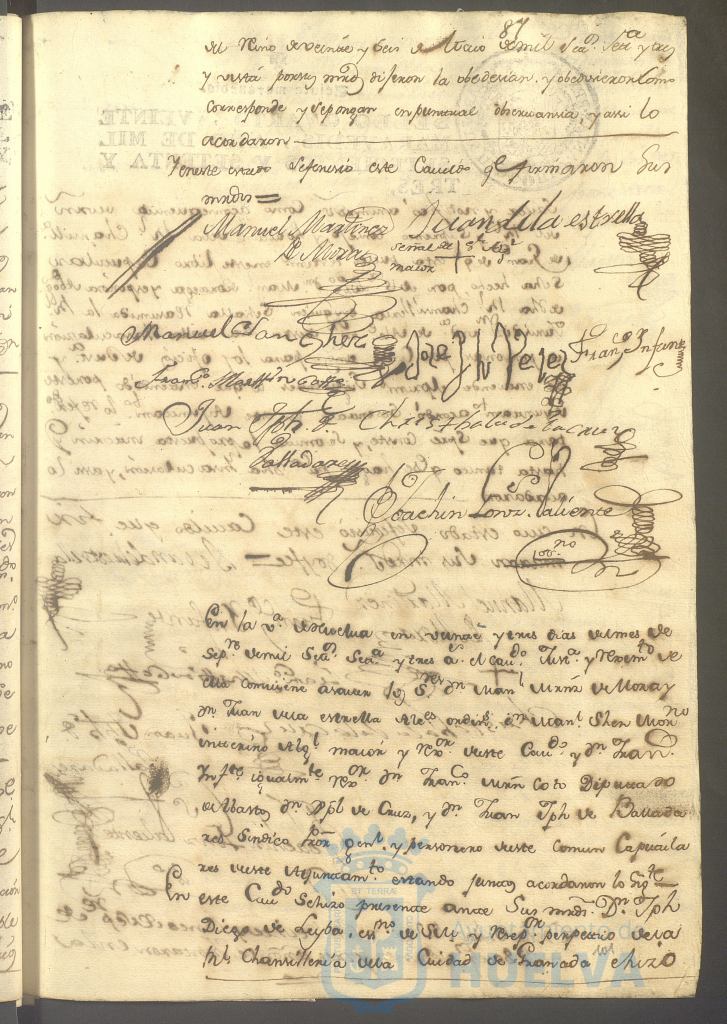 87
del Reino de veinte y seis de Maio de mil setts. seta. y tres
y vista por sus mrds. dijeron la obedecian, y obedecieron como
corresponde y se pongan en puntual observancia, y assi lo
acordaron
Y en este estado se feneció este Cavildo qe. firmaron sus
mrds =
Manuel Martinez Juan de la estrella
de Mora señal del + Sr. Algl.
maior
Manuel Sanchez Joze Ph Perez Franco. Infante
Franco. Martin Coto
Juan Jph. de Christhobal de la Cruz
Valladares
Joachin Gonz. Valiente
ssno.
En la va. de Huelva en veinte y tres dias del mes de
Sepre. de mil Setts. Seta. y tres as. el Cavdo. Justa. y Reximto. de
ella combiene a saver los Sres. Dn. Manl. Mrnz de Mora y
Dn. Juan de la estrella Alcs. ordins. Dn. Manl. Shez
interino Algl. maior y Rexor. de este Cavdo. y Dn. Franco.
Infte. igualmte. Rexor. Dn. Franco. Mrn Coto Diputado
de Abastos Dn. Xpl. de Cruz, y Dn. Juan Jph de Vallada
res Sindico Pror. genl. y personero de este Comun Capitula
res de este Ayuntamto. estando juntos acordaron lo Sigte.
En este Cavdo. se hizo presente ante Sus mrds. Dn. Jph
Diego de Leyba, enno. de SM. y Recepor. perpetuo de la
Rl. Chansilleria de la Ciudad de Granada e hizo
ET TERRAE
Ayuntamiento de
HUELVA